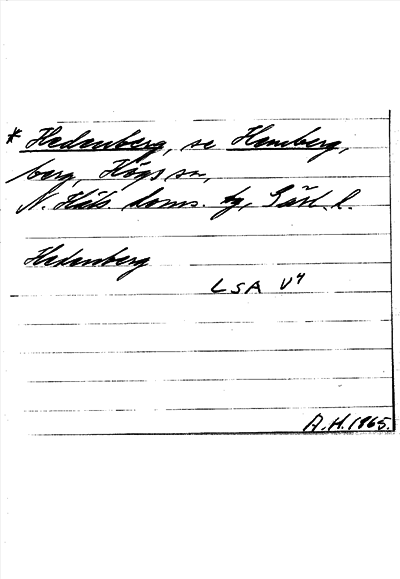 * Hedenberg, se Hemberg,
berg, Högs sn,
N. Häls. doms. tg, Gävl. l.
Hedenberg
LSA V4
A.H. 1965.